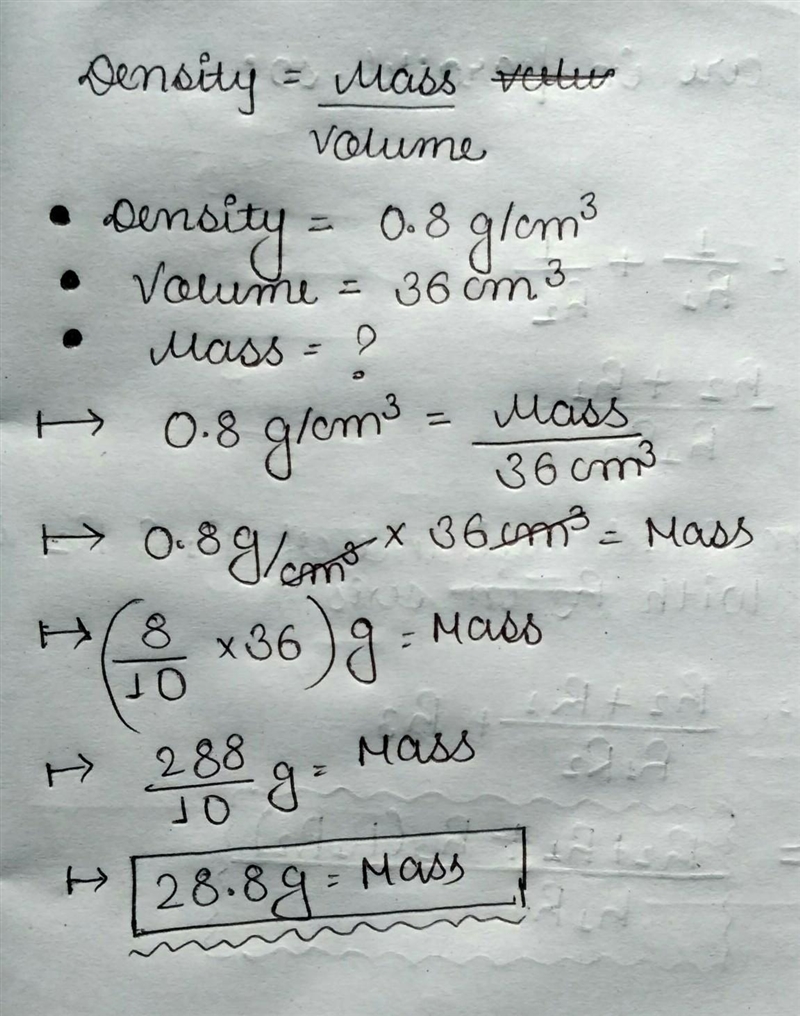 Density = Mass
Volume
• Density = 0.8 g/cm³
• Volume = 36 cm³
• Mass = ?
↦ 0.8 g/cm³ = Mass
36 cm³
↦ 0.8 g/cm³ × 36 cm³ = Mass
↦ (8/10 × 36) g = Mass
↦ 288/10 g = Mass
↦ 28.8g = Mass